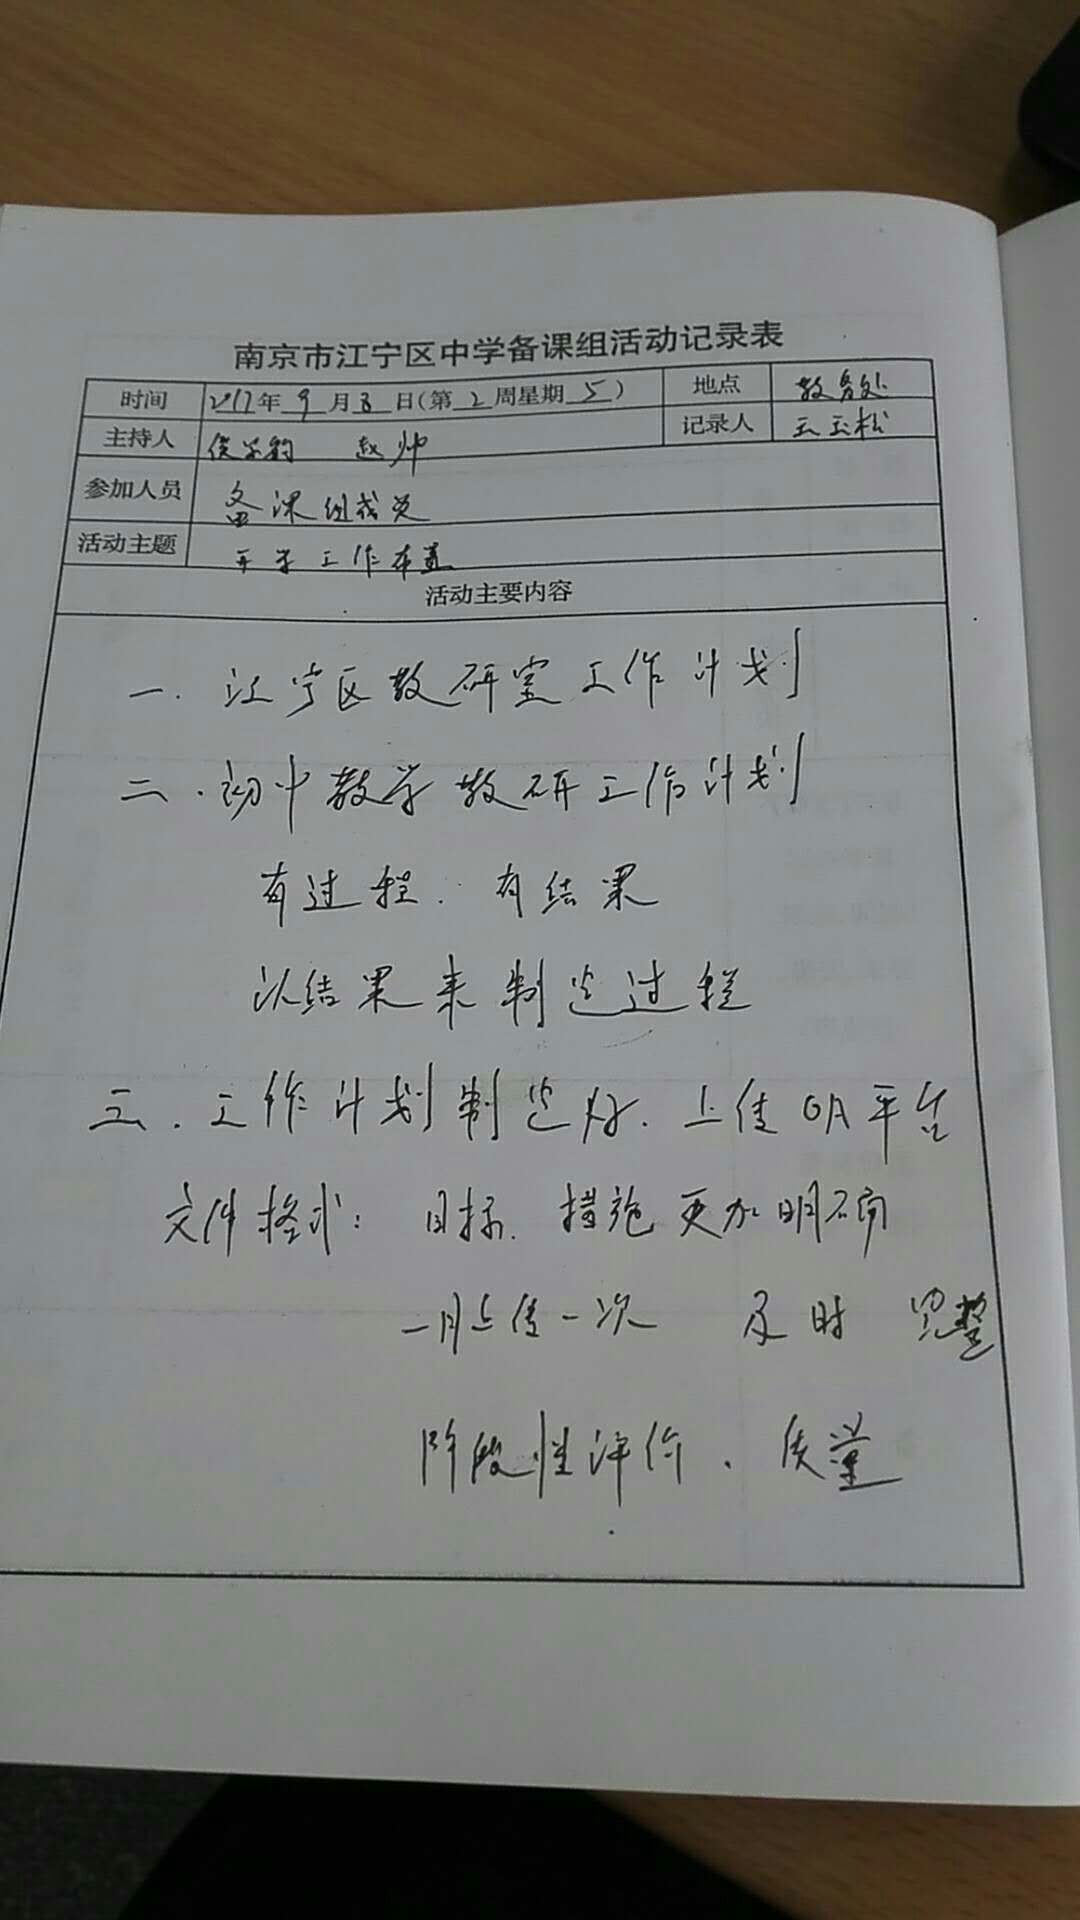 南京市江宁区中学备课组活动记录表
时间 2017年 9 月 8 日(第 2 周星期 5 ) 地点 教务处
主持人 侯学钧 赵帅 记录人 王玉松
参加人员 备课组成员
活动主题 开学工作布置
活动主要内容
一. 江宁区教研室工作计划
二. 初中教学教研工作计划
有过程. 有结果
以结果来制定过程
三. 工作计划制定好. 上传OA平台
文件格式: 目标. 措施更加明确
一月上传一次 及时 完整
阶段性评价. 质量